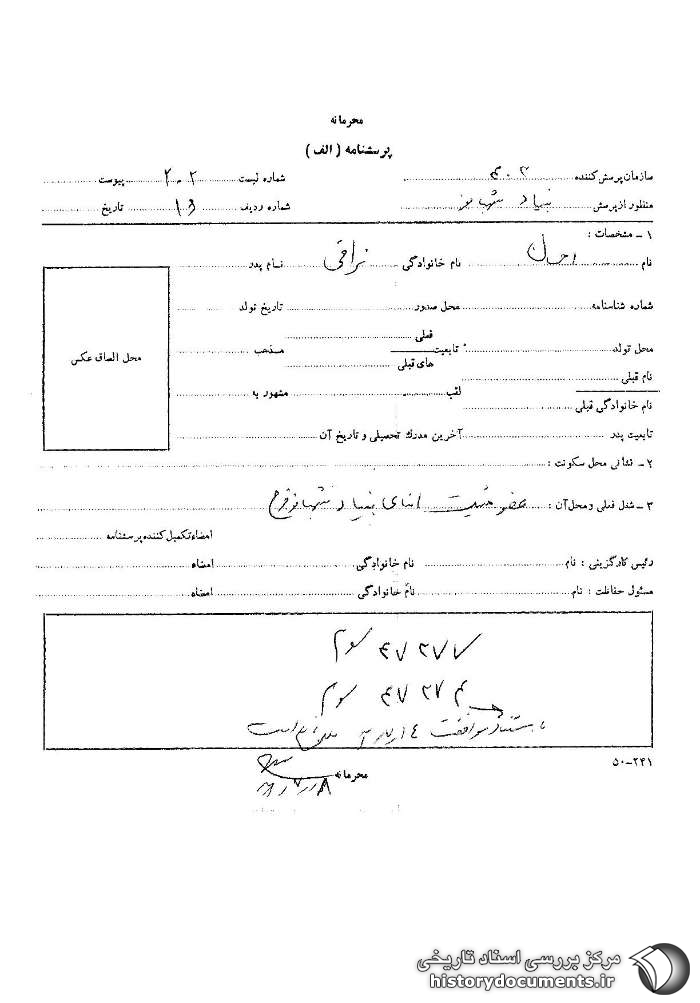 محرمانه
پرسشنامه ( الف )
سازمان پرسش کننده شماره لیست ۲۰۲ پیوست
منظور از پرس بنیاد شماره ردیف تاریخ
۱ ـ مشخصات :
نام احسان نام خانوادگی نراقی نام پدر
شماره شناسنامه محل صدور تاریخ تولد
محل تولد تابعیت فعلی های قبلی مذهب
نام قبلی
نام خانوادگی قبلی لقب مشهور به
تابعیت پدر آخرین مدرك تحصیلی و تاریخ آن
محل الصاق عکس
۲ ـ نشانی محل سکونت :
۳ ـ شغل فعلی و محل آن : عضو هیئت امنای بنیاد شهبانو فرح
امضاء تکمیل کننده پرسشنامه
رئیس کارگزینی : نام نام خانوادگی امضاء
مسئول حفاظت : نام نام خانوادگی امضاء
۵۰-۲۴۱
محرمانه
مرکز بررسی اسناد تاریخی
historydocuments.ir